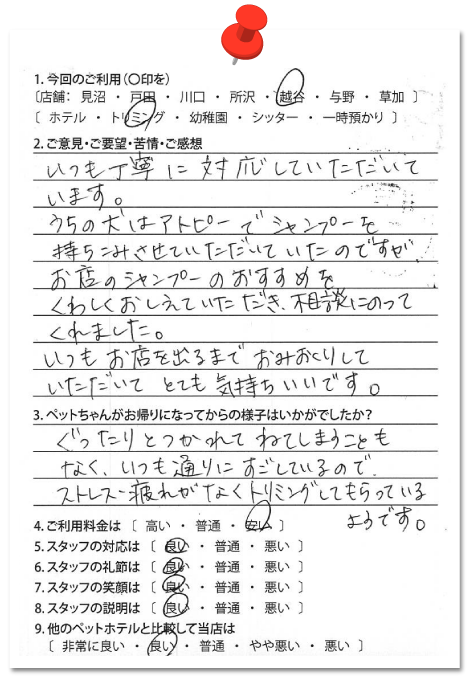 1. 今回のご利用(〇印を)
〔店舗： 見沼 ・ 戸田 ・ 川口 ・ 所沢 ・ 越谷 ・ 与野 ・ 草加 〕
〔 ホテル ・ トリミング ・ 幼稚園 ・ シッター ・ 一時預かり 〕
2.ご意見・ご要望・苦情・ご感想
いつも丁寧に対応していただいて
います。
うちの犬はアトピーでシャンプーを
持ちこみさせていただいていたのですが、
お店のシャンプーのおすすめを
くわしくおしえていただき、相談にのって
くれました。
いつもお店を出るまでおみおくりして
いただいてとても気持ちいいです。
3.ペットちゃんがお帰りになってからの様子はいかがでしたか？
ぐったりとつかれてねてしまうことも
なく、いつも通りにすごしているので、
ストレス・疲れがなくトリミングしてもらっている
ようです。
4.ご利用料金は 〔 高い ・ 普通 ・ 安い 〕
5.スタッフの対応は 〔 良い ・ 普通 ・ 悪い 〕
6.スタッフの礼節は 〔 良い ・ 普通 ・ 悪い 〕
7.スタッフの笑顔は 〔 良い ・ 普通 ・ 悪い 〕
8.スタッフの説明は 〔 良い ・ 普通 ・ 悪い 〕
9.他のペットホテルと比較して当店は
〔 非常に良い ・ 良い ・ 普通 ・ やや悪い ・ 悪い 〕